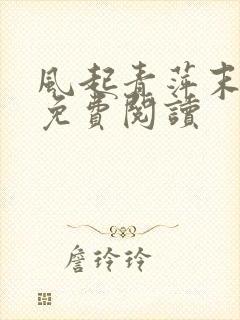 風起青萍末
免費閱讀
詹玲玲